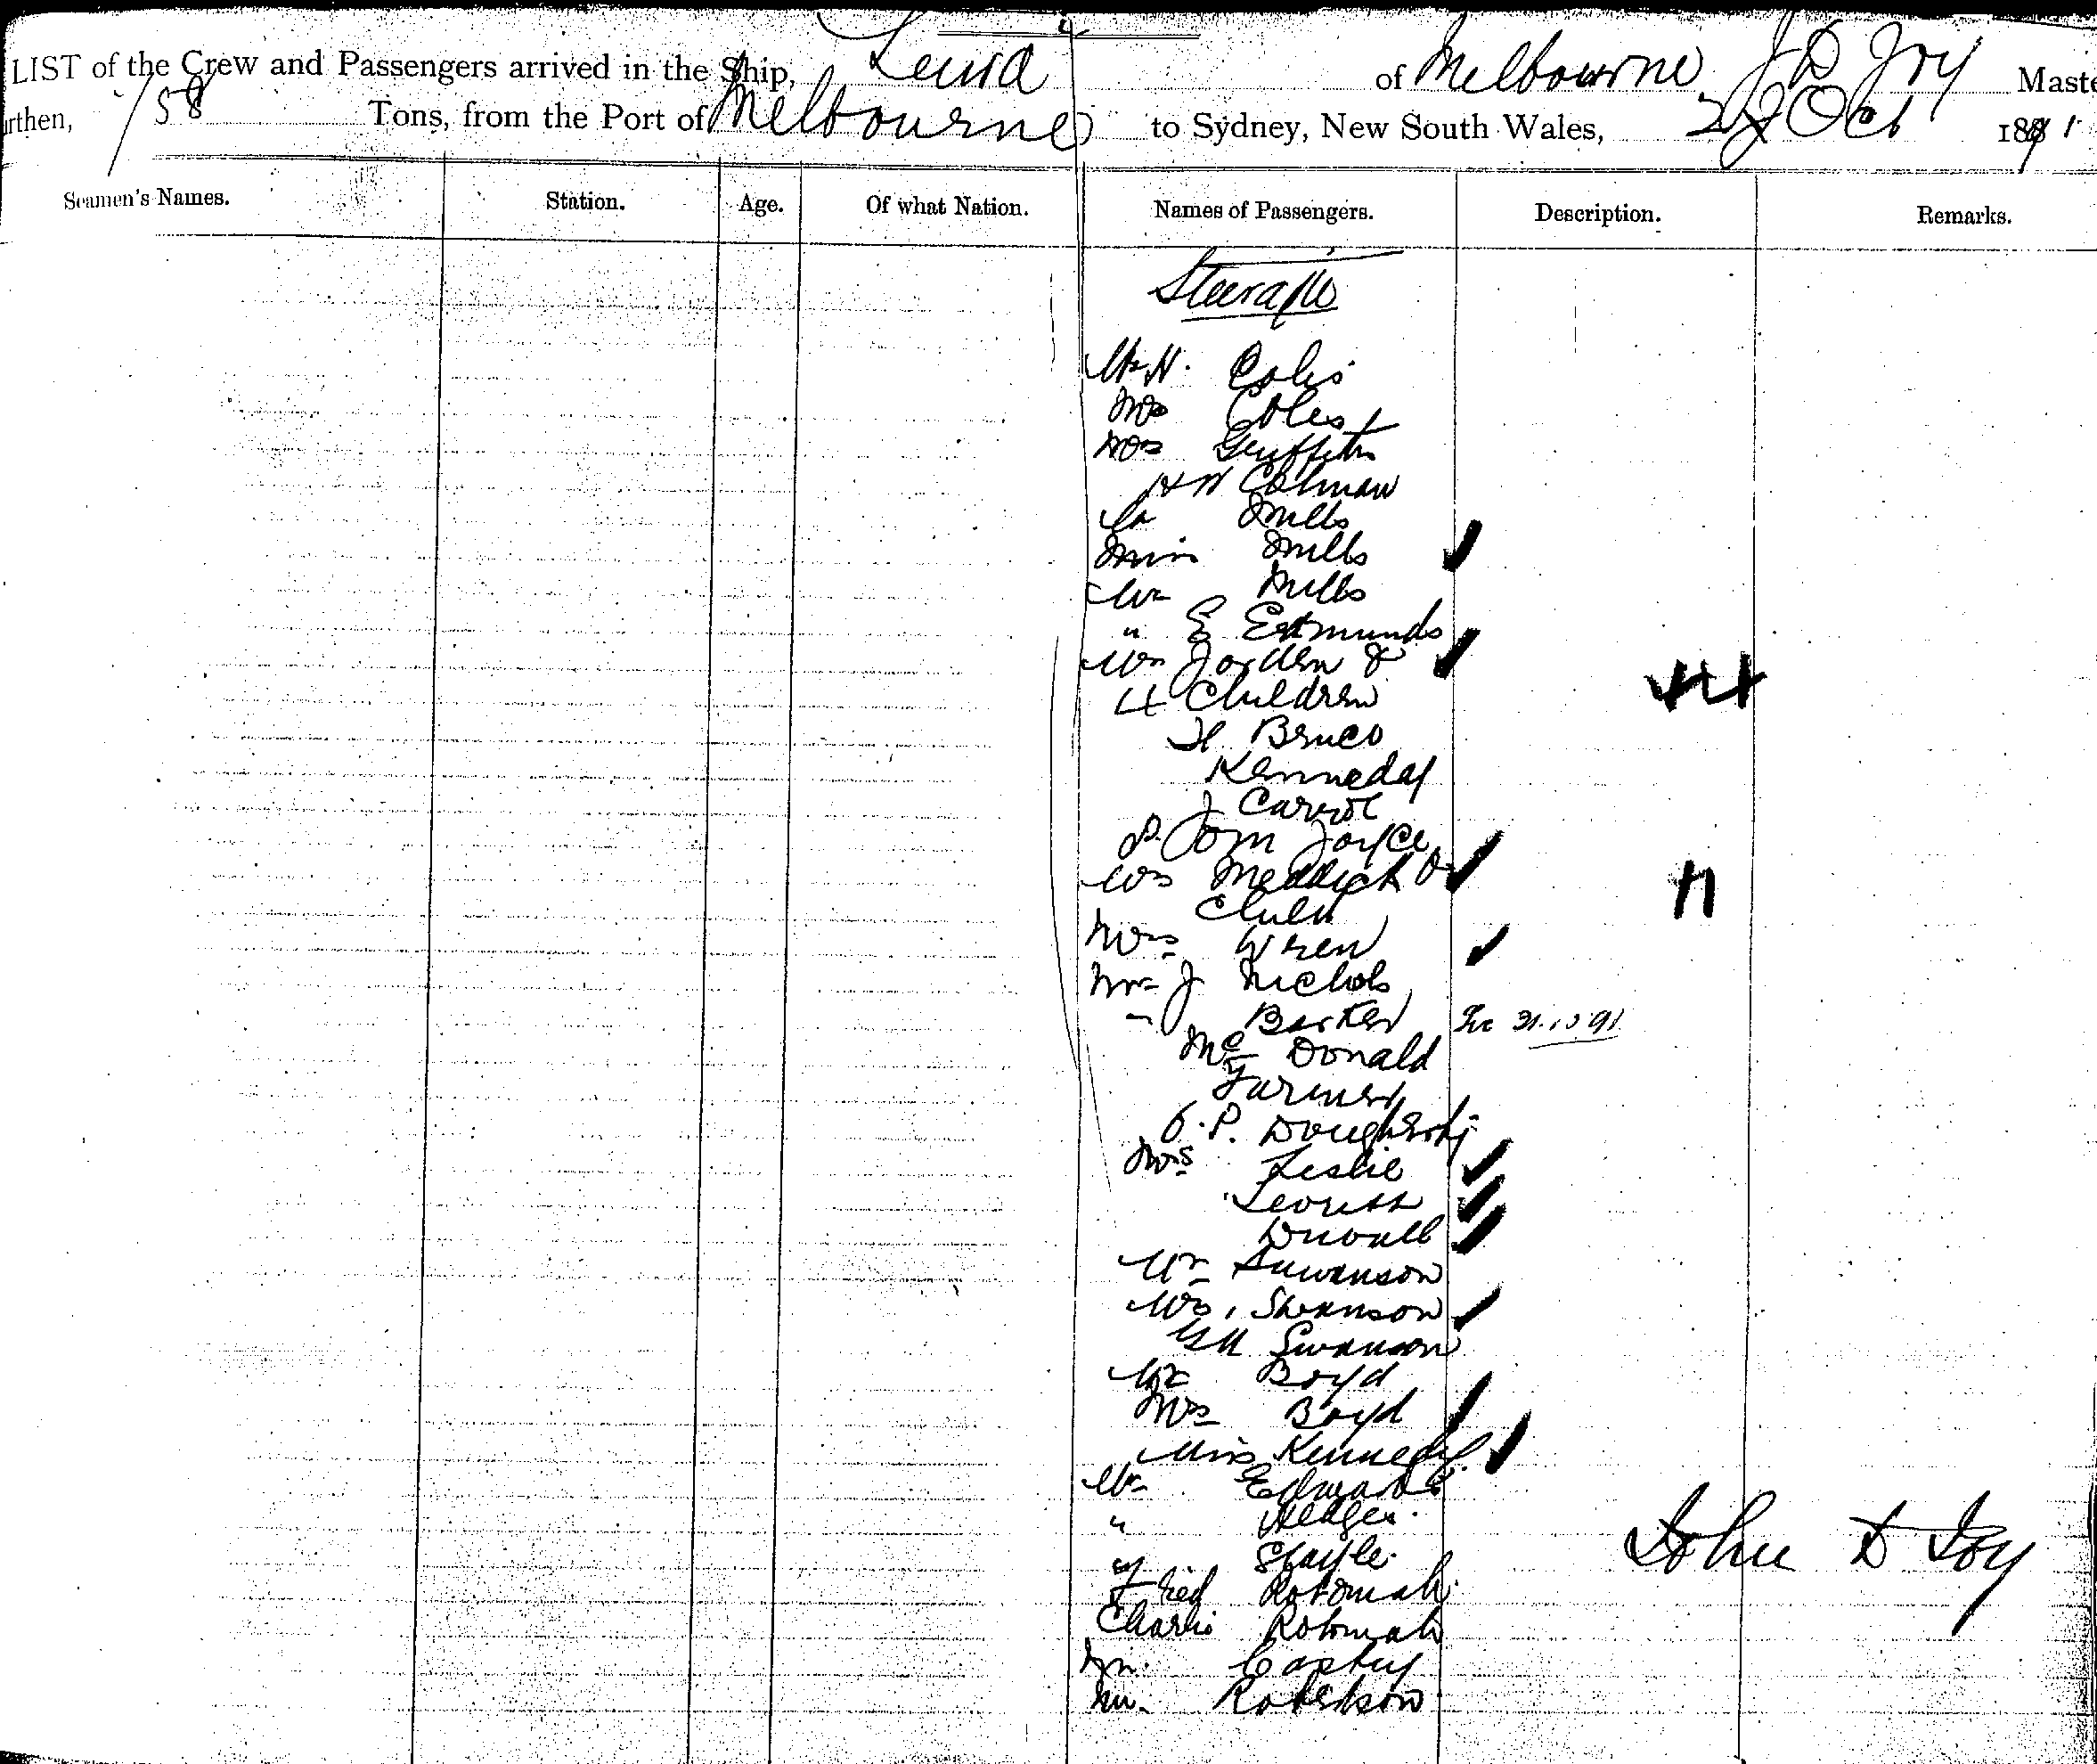 LIST of the Crew and Passengers arrived in the Ship, Leura of Melbourne J D Joy Maste
rthen, 158 Tons, from the Port of Melbourne to Sydney, New South Wales, Oct 1891
Seamen's Names. Station. Age. Of what Nation. Names of Passengers. Description. Remarks.
Steerage
Mr H. Coles
Mrs Coles
Mrs Griffiths
H W Colman
Mills
Miss Mills
Mr Mills
" E Edmunds
Mrs Jorden &
4 Children
H Bruce
Kennedy
J Carrol
P. Tom Joyce
Mrs Meddick &
Child
Mrs Wren
Mr J Nichols
" Barker 31.10.91
Mc Donald
Farmer
O. P. Dougherty
Mrs Leslie
Duvall
Mr Suwanson
Mrs Swanson
Swanson
Mr Boyd
Mrs Boyd
Miss Kennedy
Mr Edwards
" Hedges
" Shayle
Fred Rotomah
Charlie Rotomah
Mr.
Mr. Robertson
John D Joy